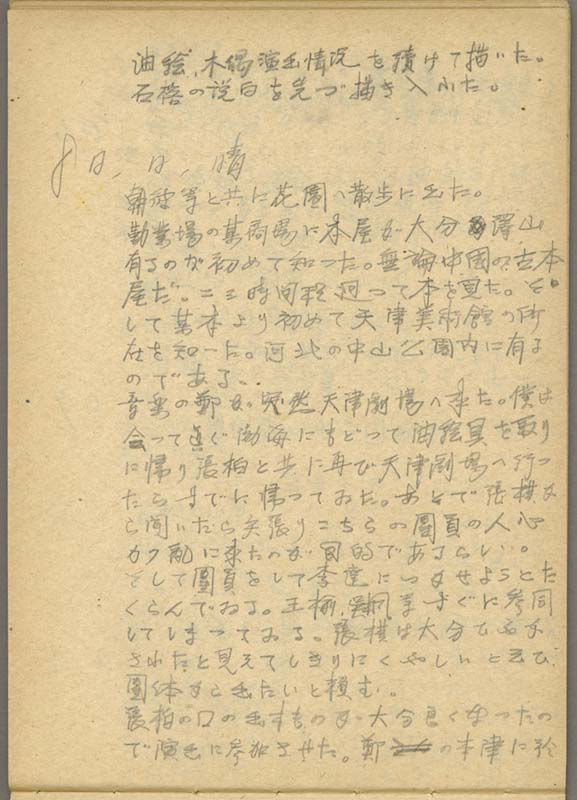 油絵、木偶演出情況を続けて描いた。
石 の説白を先づ描き入れた。
8日、日、晴
朝 等と共に花園へ散歩に出た。
勧業場の某商場に本屋が大分澤山
有るのが初めて知つた。無論中國の古本
屋だ。二三時間程廻つて本を見た。そ
して某本より初めて天津美術館の所
在を知つた。河北の中山公園内に有る
のである。
音楽の鄭が突然天津劇場へ来た。僕は
会つて直ぐ渤海にもどつて油絵具を取り
に帰り張柏と共に再び天津劇場へ行つ
たらすでに帰つておた。あとで張模か
ら聞いたら矢張りこちらの團員の人心
カク乱に来たのが目的であるらしい。
そして團員をして李 に つかせようとた
くらんでおる。王楡、 等すぐに参同
してしまつておる。張模は大分
されたと見えてしきりにくやしいと云ひ
團体から出たいと頼む。
張柏の口の出すものが大分良くなつたの
で演出に参加させた。鄭 の本津に於